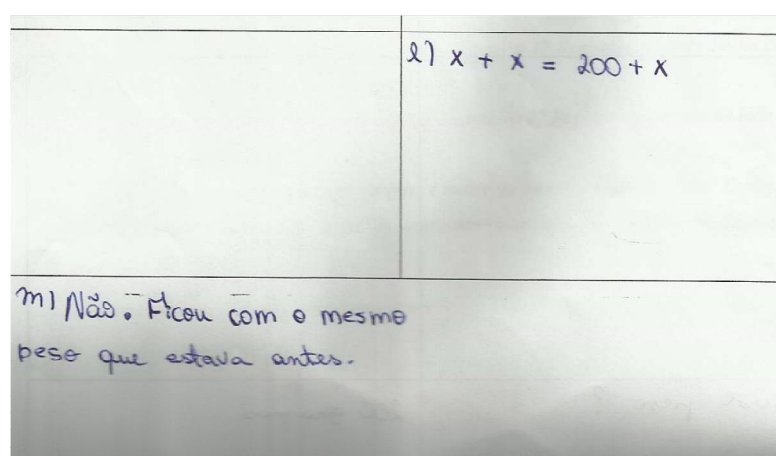 l) x + x = 200 + x
m) Não. Ficou com o mesmo
peso que estava antes.